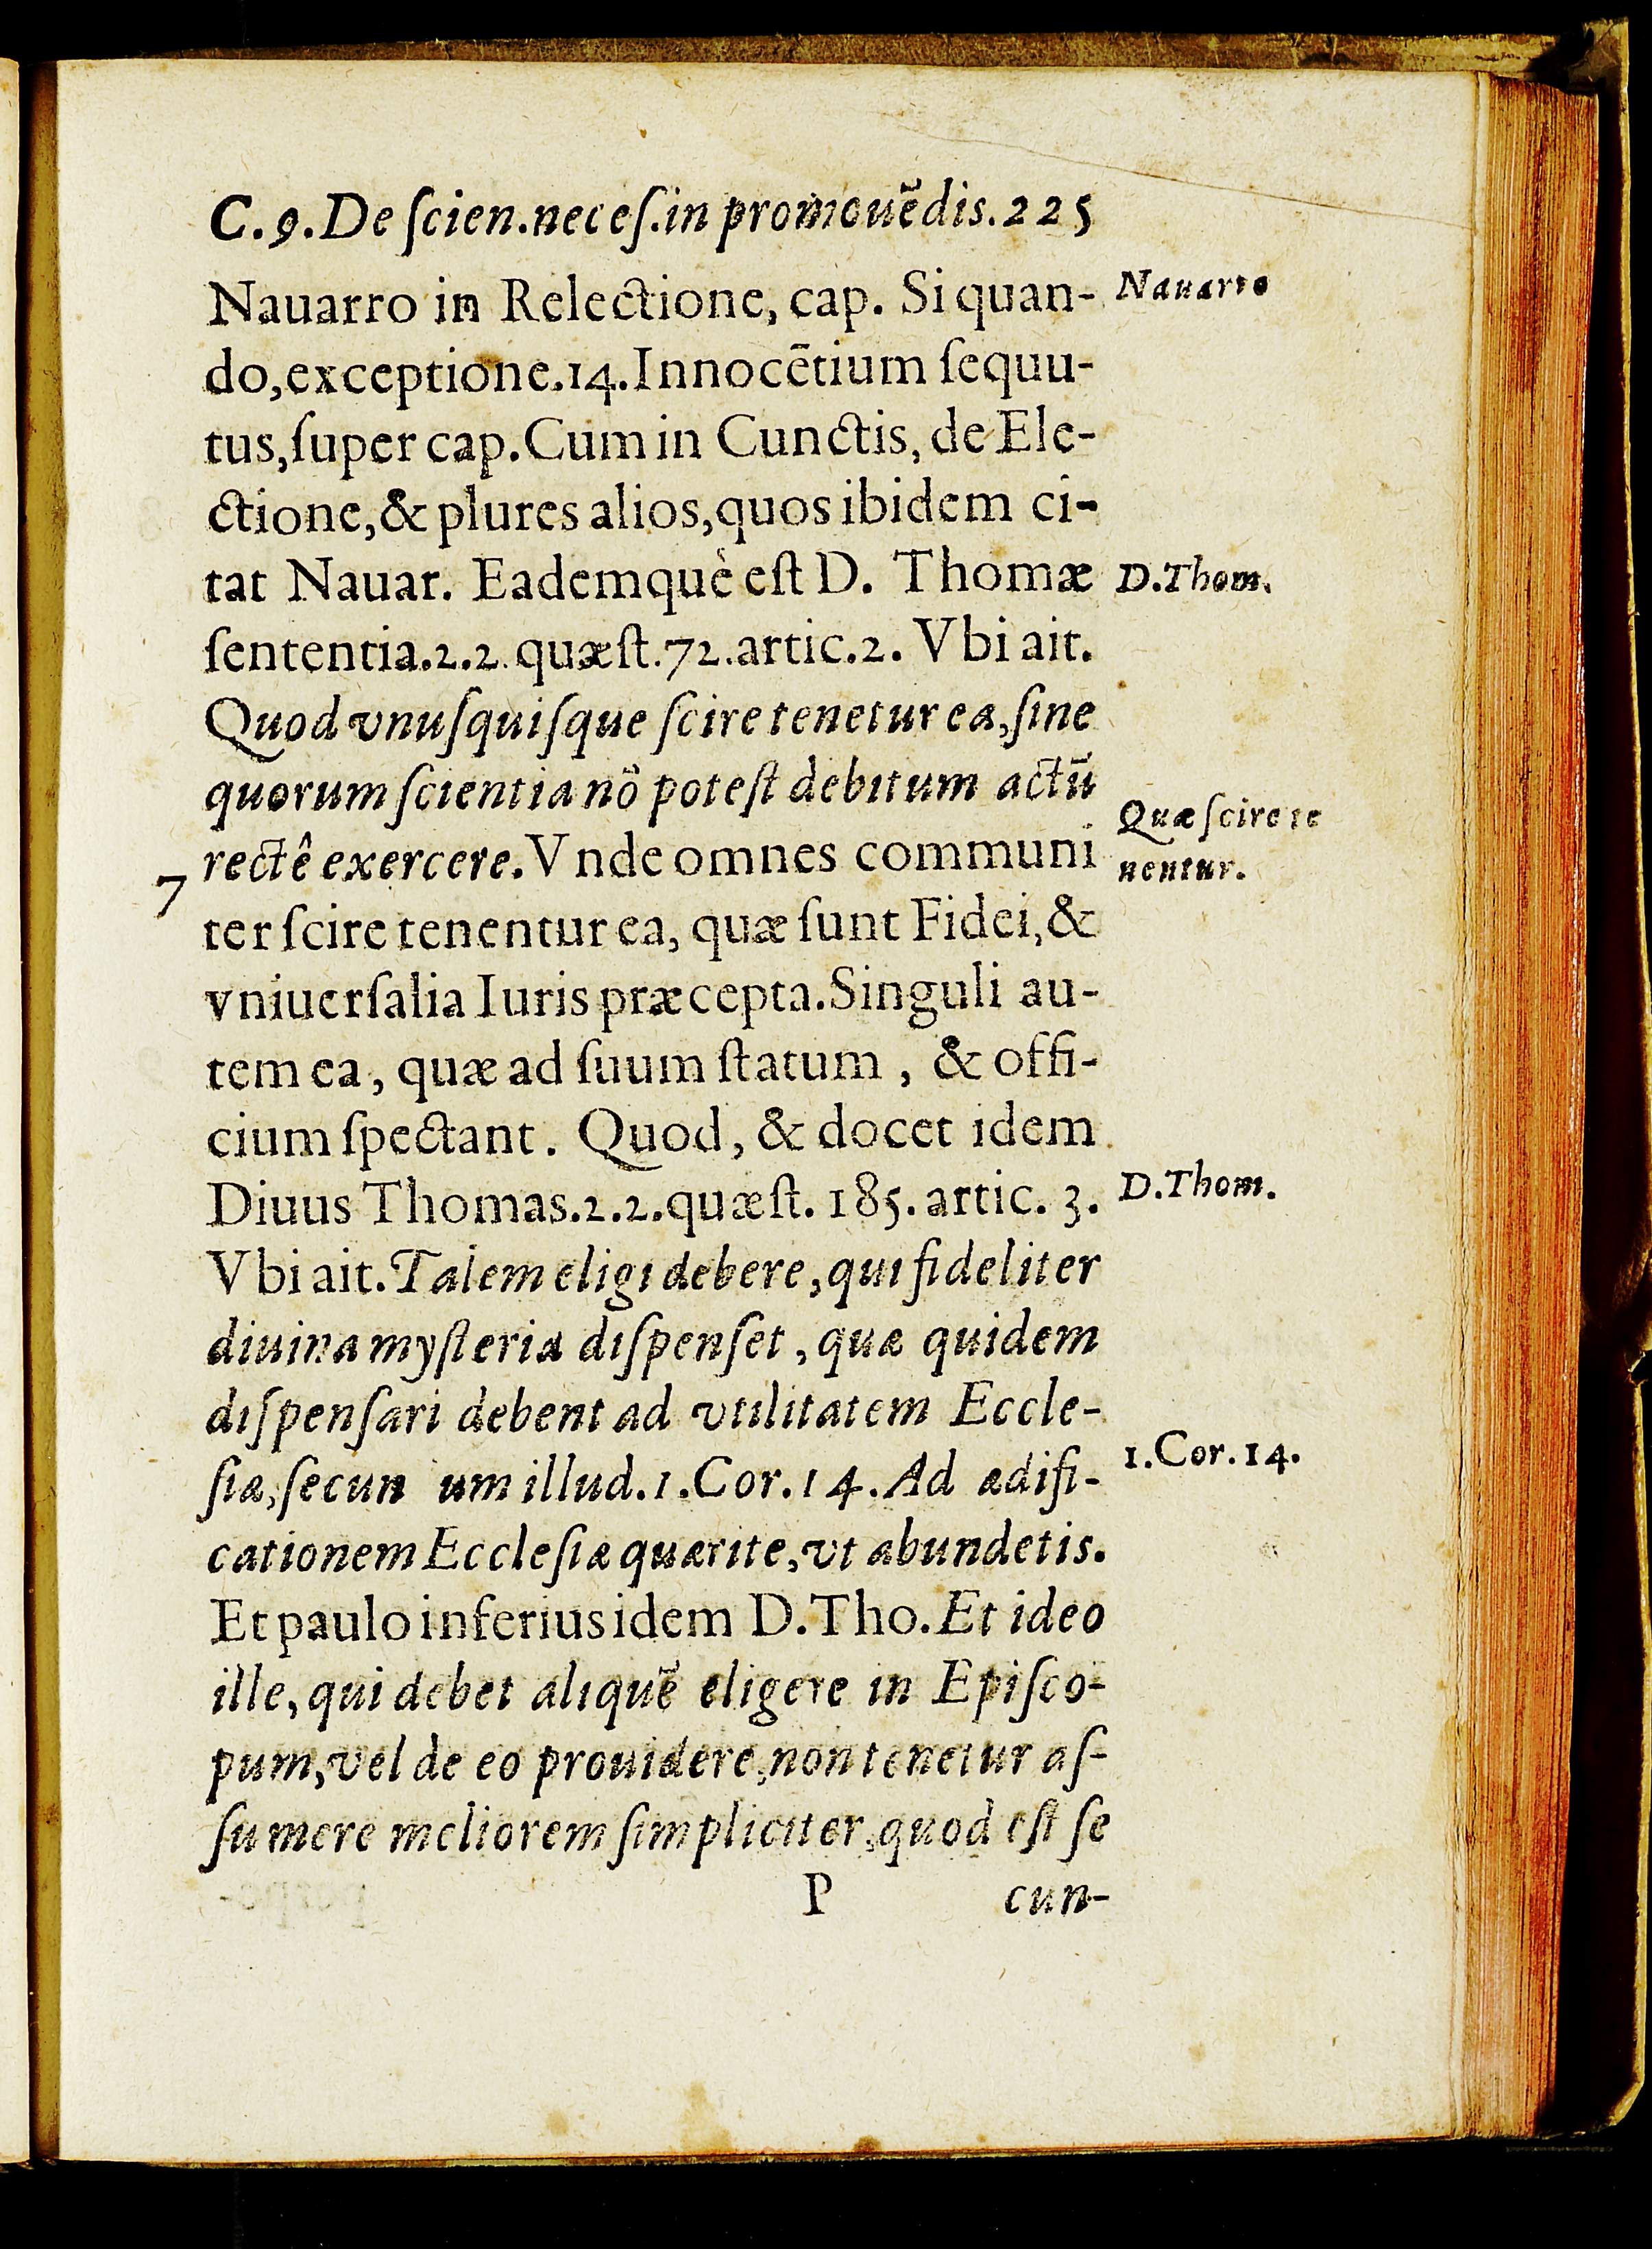 C.9.De ſcien.neceſ.in promouẽdis.225
Nauarro in Relectione, cap. Si quan-
Nauarro
do,exceptione.14.Innocētium ſequu-
tus,ſuper cap.Cum in Cunctis, de Ele-
ctione,& plures alios,quos ibidem ci-
tat Nauar. Eademquè eſt D. Thomæ
D.Thom.
ſententia.2.2.quæſt.72.artic.2. Vbi ait.
Quod vnuſquiſque ſcire tenetur ea,ſine
quorum ſcientia nõ poteſt debitum actũ
Quæ ſcire te
rectê exercere.Vnde omnes communi
nentur.
7
ter ſcire tenentur ea, quæ ſunt Fidei,&
vniuerſalia Iuris præcepta.Singuli au-
tem ea, quæ ad ſuum ſtatum, & offi-
cium ſpectant. Quod, & docet idem
Diuus Thomas.2.2.quæſt. 185. artic. 3.
D.Thom.
Vbi ait.Talem eligi debere,qui fideliter
diuina myſteria diſpenſet, quæ quidem
diſpenſari debent ad vtilitatem Eccle-
ſiæ,ſecun um illud.1.Cor.14.Ad ædifi-
1.Cor.14.
cationem Eccleſiæ quærite,vt abundetis.
Et paulo inferius idem D.Tho.Et ideo
ille,qui debet aliquẽ eligere in Epiſco-
pum,vel de eo prouidere,non tenetur aſ-
ſumere meliorem ſimpliciter,quod eſt ſe
P cun-